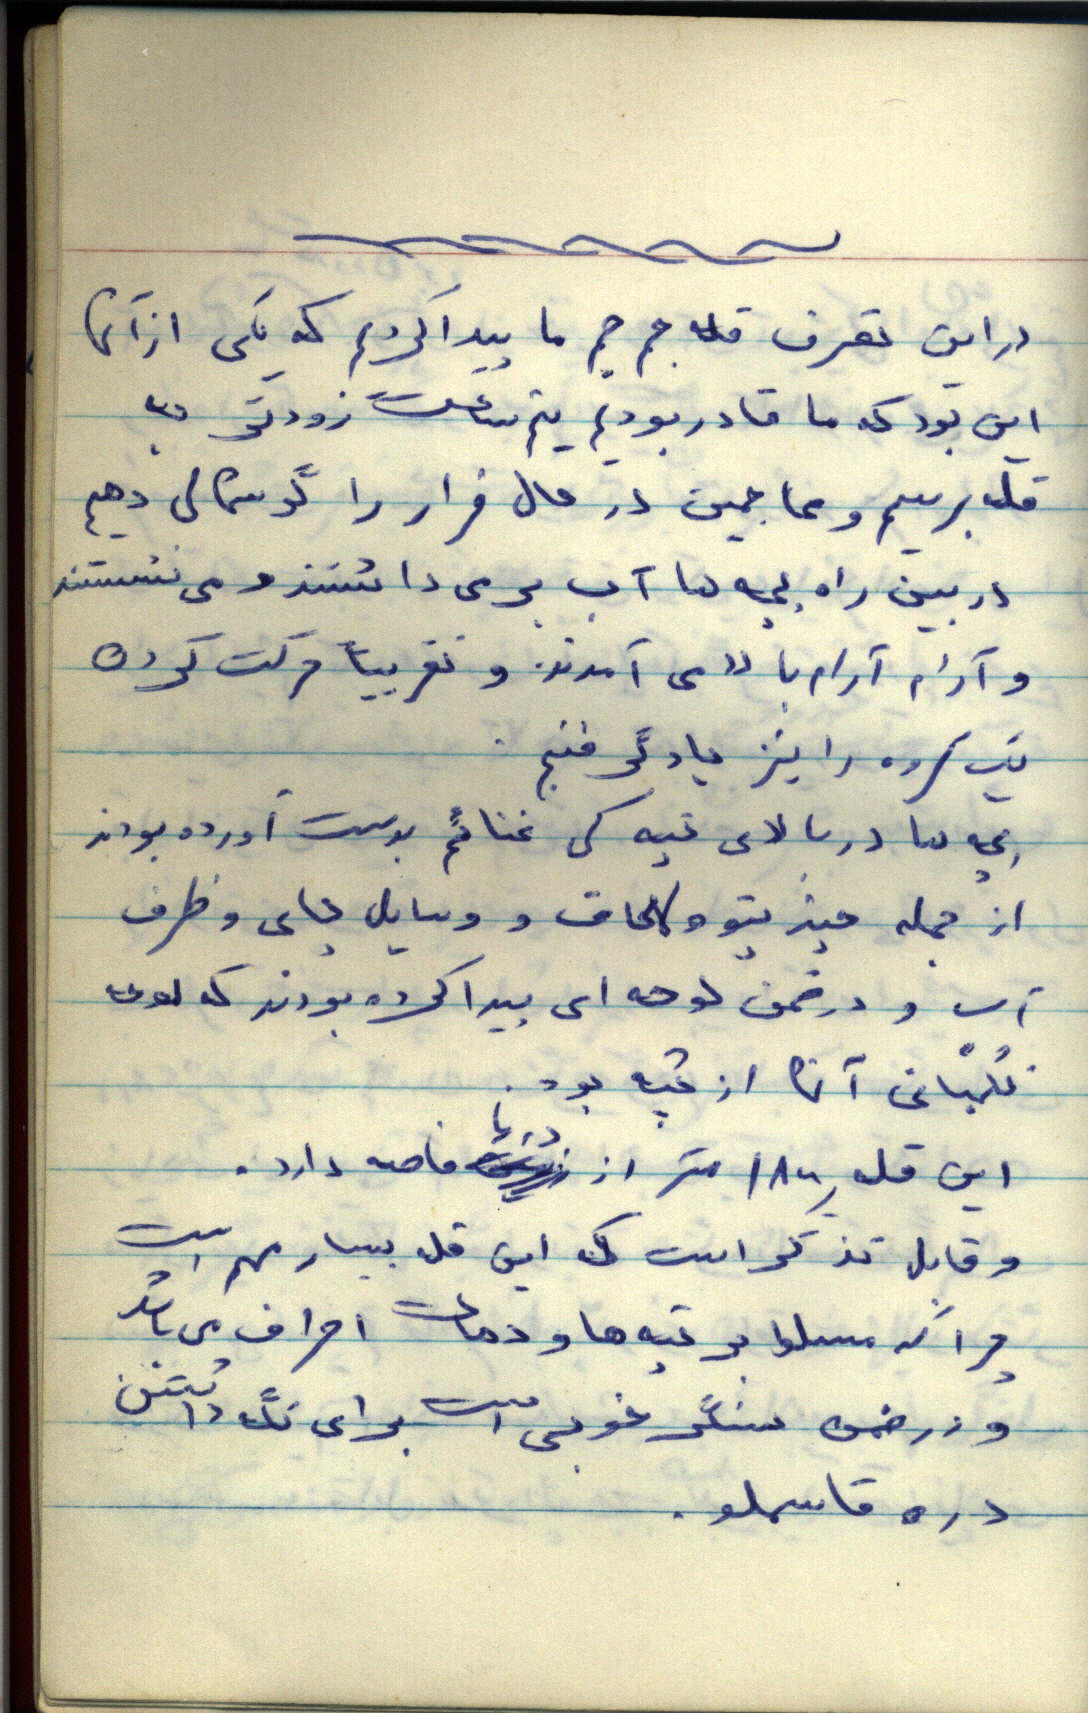 در این تصرف قله جم جم ما پیدا کردیم که یکی از آنها
این بود که ما قادر بودیم نیم ساعت زودتر به
قله برسیم و مهاجمین در حال فرار را گوشمالی دهیم
در بین راه بچه ها آب برمی داشتند و می نشستند
و آرام آرام بالا می آمدند و تقریباً حرکت کردن
یک گروه را نیز یاد گرفتیم .
بچه ها در بالای تپه کمی غنائم بدست آورده بودند
از جمله چند پتو و لحاف و وسایل چای و ظرف
آب و در ضمن لوحه ای پیدا کرده بودند که لوحه
نگهبانی آنها از تپه بود .
این قله ۱۸۷۰ متر از دریا فاصله دارد .
و قابل تذکر است که این قله بسیار مهم است
چرا که مسلط بر تپه ها و دهات اطراف می باشد
و در ضمن سنگر خوبی است برای نگه داشتن
دره قاسملو .